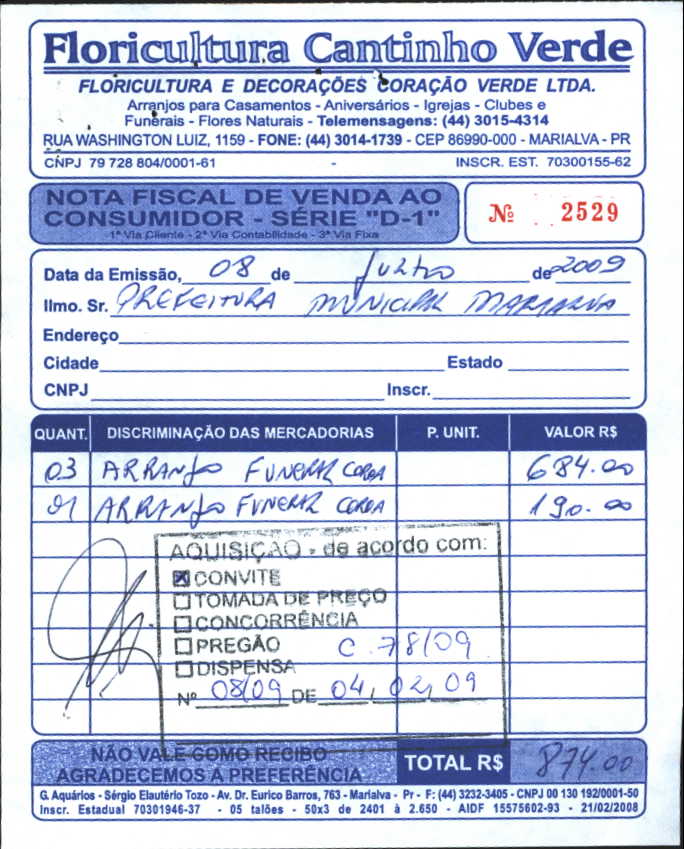 Floricultura Cantinho Verde
FLORICULTURA E DECORAÇÕES CORAÇÃO VERDE LTDA.
Arranjos para Casamentos - Aniversários - Igrejas - Clubes e
Funerais - Flores Naturais - Telemensagens: (44) 3015-4314
RUA WASHINGTON LUIZ, 1159 - FONE: (44) 3014-1739 - CEP 86990-000 - MARIALVA - PR
CNPJ 79 728 804/0001-61 - INSCR. EST. 70300155-62
NOTA FISCAL DE VENDA AO
CONSUMIDOR - SÉRIE "D-1"
1ª Via Cliente - 2ª Via Contabilidade - 3ª Via Fixa
Nº 2529
Data da Emissão, 08 de Julho de 2009
Ilmo. Sr. PREFEITURA MUNICIPAL MARIALVA
Endereço
Cidade Estado
CNPJ Inscr.
QUANT. DISCRIMINAÇÃO DAS MERCADORIAS P. UNIT. VALOR R$
03 ARRANJO FUNERAL COROA 684.00
01 ARRANJO FUNERAL COROA 190.00
AQUISIÇÃO - de acordo com:
CONVITE
TOMADA DE PREÇO
CONCORRÊNCIA
PREGÃO C. 78/09
DISPENSA
Nº 08/09 DE 04, 02, 09
NÃO VALE COMO RECIBO
AGRADECEMOS A PREFERÊNCIA
TOTAL R$ 874.00
G. Aquários - Sérgio Elautério Tozo - Av. Dr. Eurico Barros, 763 - Marialva - Pr - F: (44) 3232-3405 - CNPJ 00 130 192/0001-50
Inscr. Estadual 70301946-37 - 05 talões - 50x3 de 2401 à 2.650 - AIDF 15575602-93 - 21/02/2008